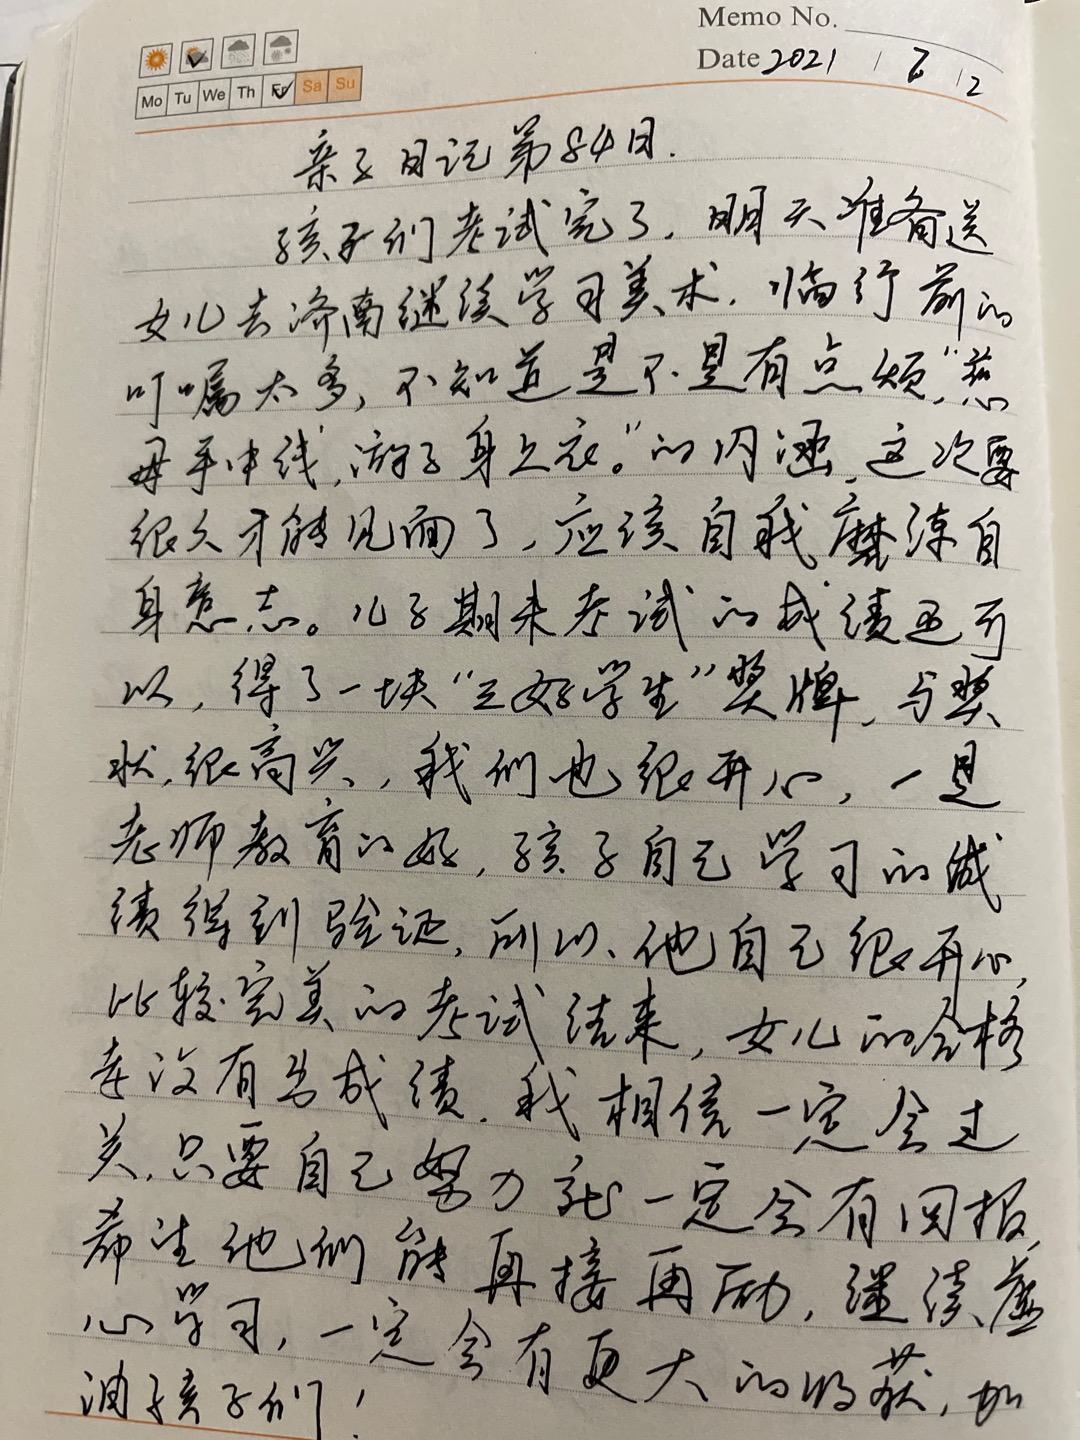 Memo No.
Mo Tu We Th Fr Sa Su
Date 2021 / / 2
亲子日记第84日.
孩子们考试完了,明天准备送
女儿去济南继续学习美术,临行前的
叮嘱太多,不知道是不是有点烦,“慈
母手中线,游子身上衣。”的内涵,这次要
很久才能见面了,应该自我磨练自
身意志。儿子期末考试的成绩还可
以,得了一块“三好学生”奖牌,与奖
状,很高兴,我们也很开心,一是
老师教育的好,孩子自己学习的成
绩得到验证,所以、他自己很开心,
比较完美的考试结束,女儿的合格
考没有出成绩,我相信一定会过
关,只要自己努力就一定会有回报,
希望他们能再接再励,继续虚
心学习,一定会有更大的收获,加
油孩子们!